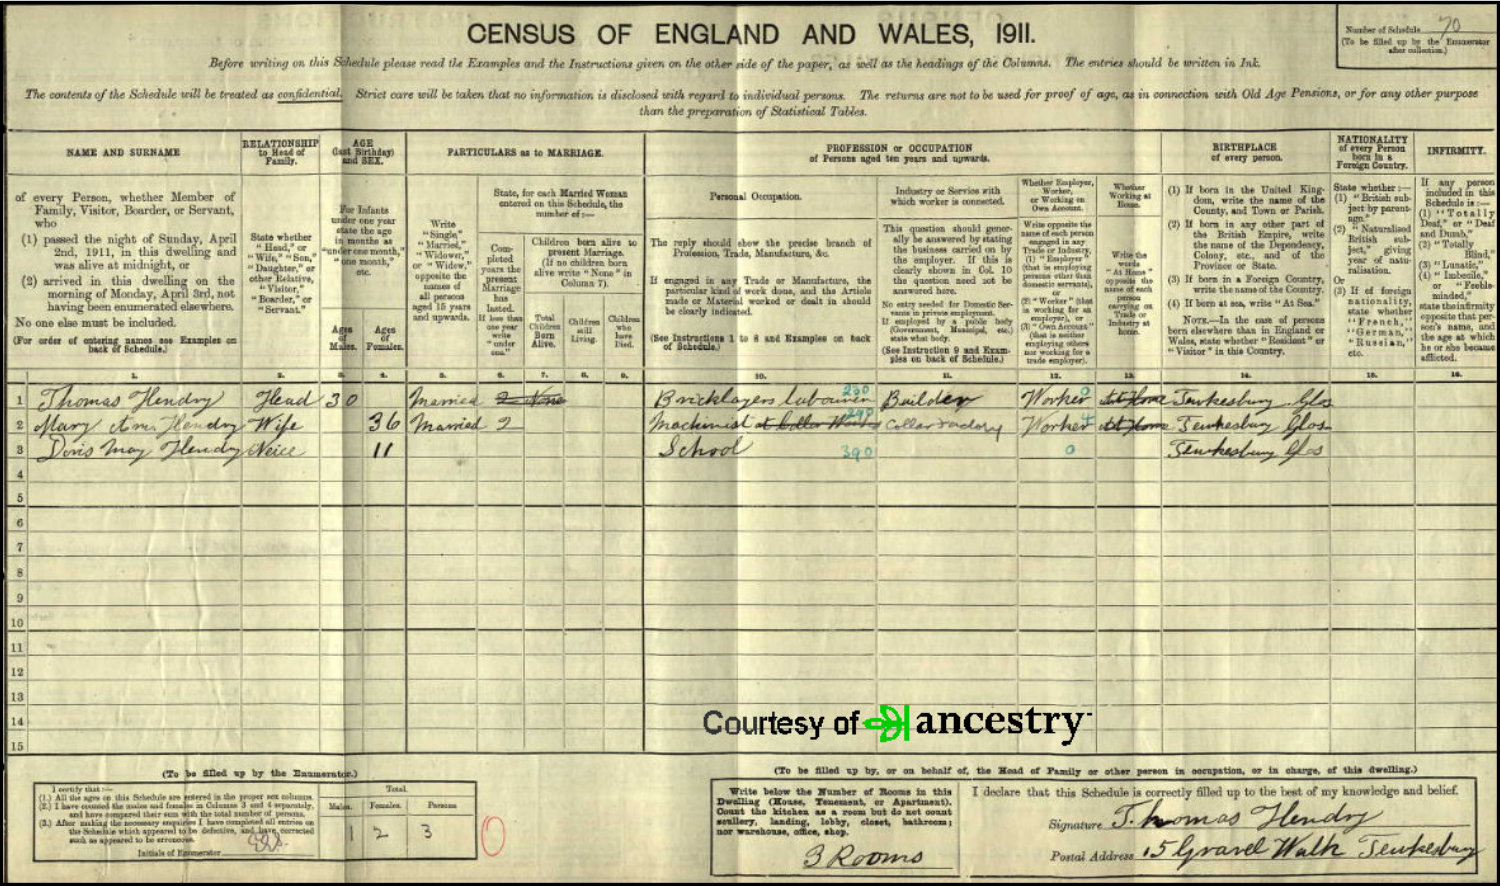 CENSUS OF ENGLAND AND WALES, 1911.
Number of Schedule 70
(To be filled up by the Enumerator
after collection.)
Before writing on this Schedule please read the Examples and the Instructions given on the other side of the paper, as well as the headings of the Columns. The entries should be written in Ink.
The contents of the Schedule will be treated as confidential. Strict care will be taken that no information is disclosed with regard to individual persons. The returns are not to be used for proof of age, as in connection with Old Age Pensions, or for any other purpose
than the preparation of Statistical Tables.
NAME AND SURNAME
of every Person, whether Member of
Family, Visitor, Boarder, or Servant,
who
(1) passed the night of Sunday, April
2nd, 1911, in this dwelling and
was alive at midnight, or
(2) arrived in this dwelling on the
morning of Monday, April 3rd, not
having been enumerated elsewhere.
No one else must be included.
(For order of entering names see Examples on
back of Schedule.)
RELATIONSHIP
to Head of
Family.
State whether
"Head," or
"Wife," "Son,"
"Daughter," or
other Relative,
"Visitor,"
"Boarder," or
"Servant."
AGE
(last Birthday)
and SEX.
For Infants
under one year
state the age
in months as
"under one month,"
"one month,"
etc.
Ages
of
Males.
Ages
of
Females.
PARTICULARS as to MARRIAGE.
Write
"Single,"
"Married,"
"Widower,"
or "Widow,"
opposite the
names of
all persons
aged 15 years
and upwards.
State, for each Married Woman
entered on this Schedule, the
number of :—
Com-
pleted
years the
present
Marriage
has
lasted.
If less than
one year
write
"under
one."
Children born alive to
present Marriage.
(If no children born
alive write "None" in
Column 7).
Total
Children
Born
Alive.
Children
still
Living.
Children
who
have
Died.
PROFESSION or OCCUPATION
of Persons aged ten years and upwards.
Personal Occupation.
The reply should show the precise branch of
Profession, Trade, Manufacture, &c.
If engaged in any Trade or Manufacture, the
particular kind of work done, and the Article
made or Material worked or dealt in should
be clearly indicated.
(See Instructions 1 to 8 and Examples on back
of Schedule.)
Industry or Service with
which worker is connected.
This question should gener-
ally be answered by stating
the business carried on by
the employer. If this is
clearly shown in Col. 10
the question need not be
answered here.
No entry needed for Domestic Ser-
vants in private employment.
If employed by a public body
(Government, Municipal, etc.)
state what body.
(See Instruction 9 and Exam-
ples on back of Schedule.)
Whether Employer,
Worker,
or Working on
Own Account.
Write opposite the
name of each person
engaged in any
Trade or Industry,
(1) "Employer"
(that is employing
persons other than
domestic servants),
or
(2) "Worker" (that
is working for an
employer), or
(3) "Own Account"
(that is neither
employing others
nor working for a
trade employer).
Whether
Working at
Home.
Write the
words
"At Home"
opposite the
name of each
person
carrying on
Trade or
Industry at
home.
BIRTHPLACE
of every person.
(1) If born in the United King-
dom, write the name of the
County, and Town or Parish.
(2) If born in any other part of
the British Empire, write
the name of the Dependency,
Colony, etc., and of the
Province or State.
(3) If born in a Foreign Country,
write the name of the Country.
(4) If born at sea, write "At Sea."
NOTE.—In the case of persons
born elsewhere than in England or
Wales, state whether "Resident" or
"Visitor" in this Country.
NATIONALITY
of every Person
born in a
Foreign Country.
State whether :—
(1) "British sub-
ject by parent-
age."
(2) "Naturalised
British sub-
ject," giving
year of natu-
ralisation.
Or
(3) If of foreign
nationality,
state whether
"French,"
"German,"
"Russian,"
etc.
INFIRMITY.
If any person
included in this
Schedule is :—
(1) "Totally
Deaf," or "Deaf
and Dumb,"
(2) "Totally
Blind,"
(3) "Lunatic,"
(4) "Imbecile,"
or "Feeble-
minded,"
state the infirmity
opposite that per-
son's name, and
the age at which
he or she became
afflicted.
1. 2. 3. 4. 5. 6. 7. 8. 9. 10. 11. 12. 13. 14. 15. 16.
1 Thomas Hendry Head 30 Married 2 None Bricklayers labourer 230 Builder Worker 0 At Home Tewkesbury Glos
2 Mary Ann Hendry Wife 36 Married 2 Machinist at Collar Works 290 Collar Factory Worker 4 At Home Tewkesbury Glos
3 Doris May Hendry Neice 11 School 390 0 Tewkesbury Glos
4
5
6
7
8
9
10
11
12
13
14
15
Courtesy of ancestry
(To be filled up by the Enumerator.)
I certify that :—
(1.) All the ages on this Schedule are entered in the proper sex columns.
(2.) I have counted the males and females in Columns 3 and 4 separately,
and have compared their sum with the total number of persons.
(3.) After making the necessary enquiries I have completed all entries on
the Schedule which appeared to be defective, and have corrected
such as appeared to be erroneous.
Initials of Enumerator
Total.
Males. Females. Persons
1 2 3
0
(To be filled up by, or on behalf of, the Head of Family or other person in occupation, or in charge, of this dwelling.)
Write below the Number of Rooms in this
Dwelling (House, Tenement, or Apartment).
Count the kitchen as a room but do not count
scullery, landing, lobby, closet, bathroom;
nor warehouse, office, shop.
3 Rooms
I declare that this Schedule is correctly filled up to the best of my knowledge and belief.
Signature Thomas Hendry
Postal Address 15 Gravel Walk Tewkesbury